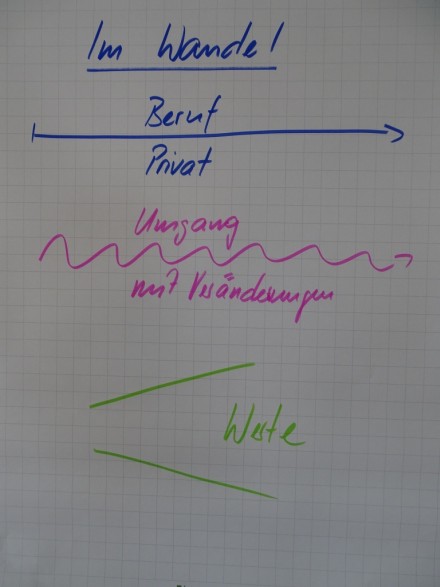 Im Wandel
Beruf
Privat
Umgang
mit Veränderungen
Werte